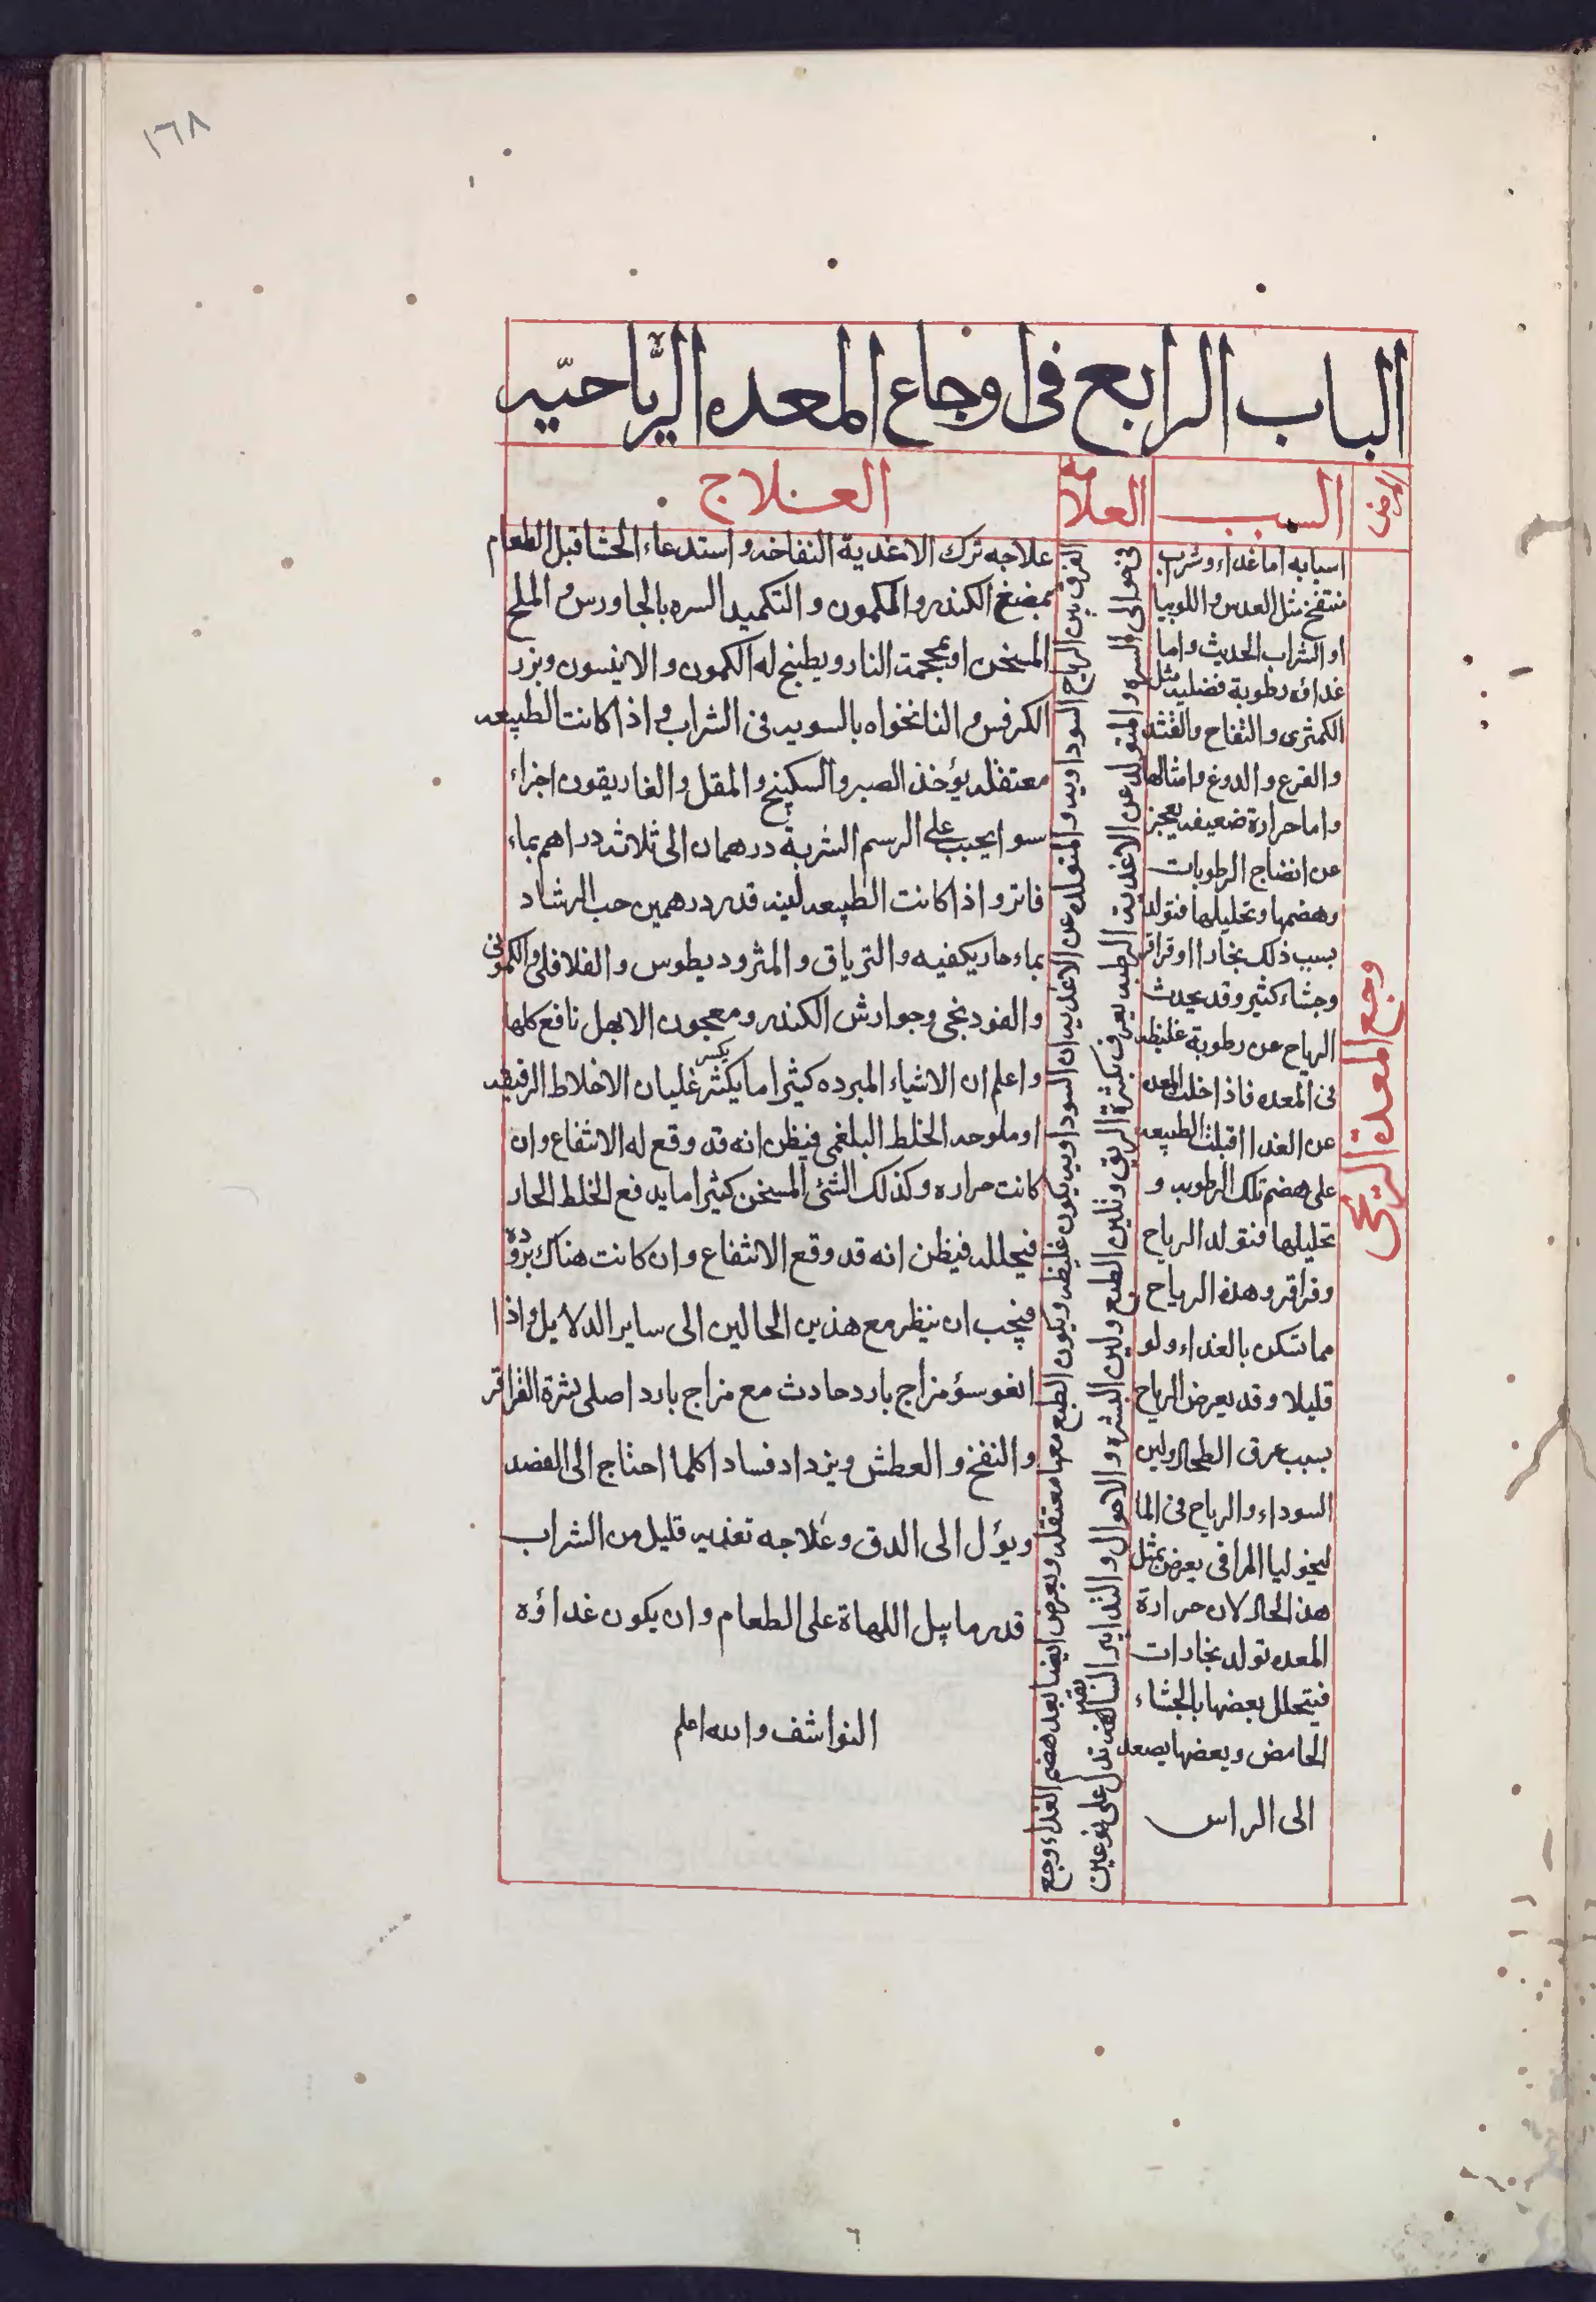 ١٦٨
الباب الرابع فى اوجاع المعده الرياحيّه
المرض
السبب
العلامه
العلاج
وجع المعدة الريحى
اسبابه اما غداء وشراب
منتفخ مثل العدس واللوبيا
او الشراب الحديث واما
غداؤه رطوبة فضليه مثل
الكمثرى والتفاح والقثد
والقرع والدوغ وامثالها
واما حرارة ضعيفه يعجز
عن انضاج الرطوبات
وهضمها وتحليلها فتولد
بسبب ذلك بخارا او قراقر
وجشاء كثير وقد يحدث
الرياح عن رطوبة غليظه
فى المعده فاذا خلت المعده
عن الغدا اقبلت الطبيعه
على هضم تلك الرطوبه و
تحليلها فتولد الرياح
وقراقر وهذه الرياح
مما تسكن بالغداء ولو
قليلا وقد يعرض الرياح
بسبب عرق الطحال ولين
السوداء والرياح فى الما
ليخوليا المراقى يعرض بمثل
هذا الحال لان حرارة
المعده تولد بخارات
فيتحلل بعضها بالجشاء
الحامض وبعضها يصعد
الى الراس
فى حوالى السره والمتولده عن الاغدية الرطبه يعرف بكثرة الريق وتلين الطبع ولين البشره والاحوال والتدابير السالفه تدل على نوعين
الفرق بين الرياح السوداويه والمتولده عن الاغديه ان السوداويه يكون غليظه ويكون الطبع معها معتقله ويعرض ايضا بعد هضم الغداء وجع
علاجه ترك الاغدية النفاخه واستدعاء الجشا قبل الطعام
بمضغ الكندر والكمون والتكميد السره بالجاورس والملح
المسخن او بمجمة النار ويطبخ له الكمون والانيسون وبزر
الكرفس والنانخواه بالسويه فى الشراب واذا كانت الطبيعه
معتقله يؤخذ الصبر والسكبينج والمقل والغاريقون اجزاء
سوا يحبب على الرسم الشربة درهمان الى ثلاثه دراهم بماء
فاتر واذا كانت الطبيعه لينه قدر درهمين حب الرشاد
بماء حار يكفيه والترياق والمثروديطوس والفلافلى والكمونى
والفودنجى وجوارش الكندر ومعجون الابهل نافع كلها
واعلم ان الاشياء المبرده كثيرا ما يكثر يكسر غليان الاخلاط الرقيقه
او ملوحه الخلط البلغمى فيظن انه قد وقع له الانتفاع وان
كانت حراره وكذلك الشئ المسخن كثيرا ما يدفع الخلط الحار
فيحلله فيظن انه قد وقع الانتفاع وان كانت هناك بروده
فيجب ان ينظر مع هذين الحالين الى ساير الدلايل واذا
اتفق سؤ مزاج بارد حادث مع مزاج بارد اصلى بثرة القراقر
والنفخ والعطش ويزداد فسادا كلما احتاج الى الفصد
ويؤل الى الدق وعلاجه تغذيه قليل من الشراب
قدر ما يبل اللهاة على الطعام وان يكون غداؤه
النواشف والله اعلم
٦